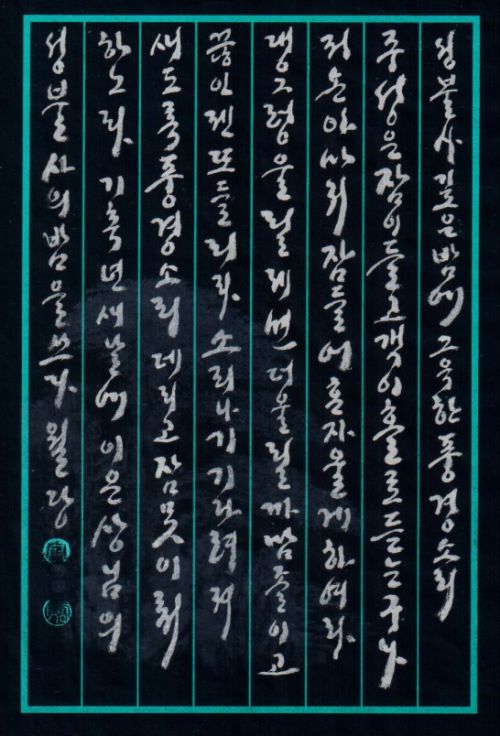 성불사 깊은 밤에 그윽한 풍경소리
주승은 잠이들고 객이홀로 듣는구나
저손아 마저 잠들어 혼자울게 하여라.
댕그렁 울릴제면 더울릴까 맘졸이고
끊인젠 또들리라. 소리나기 기다려져
새도록 풍경소리 데리고 잠못이뤄
하노라. 기축년 새날에 이은상님의
성불사의 밤을 쓰다 월당